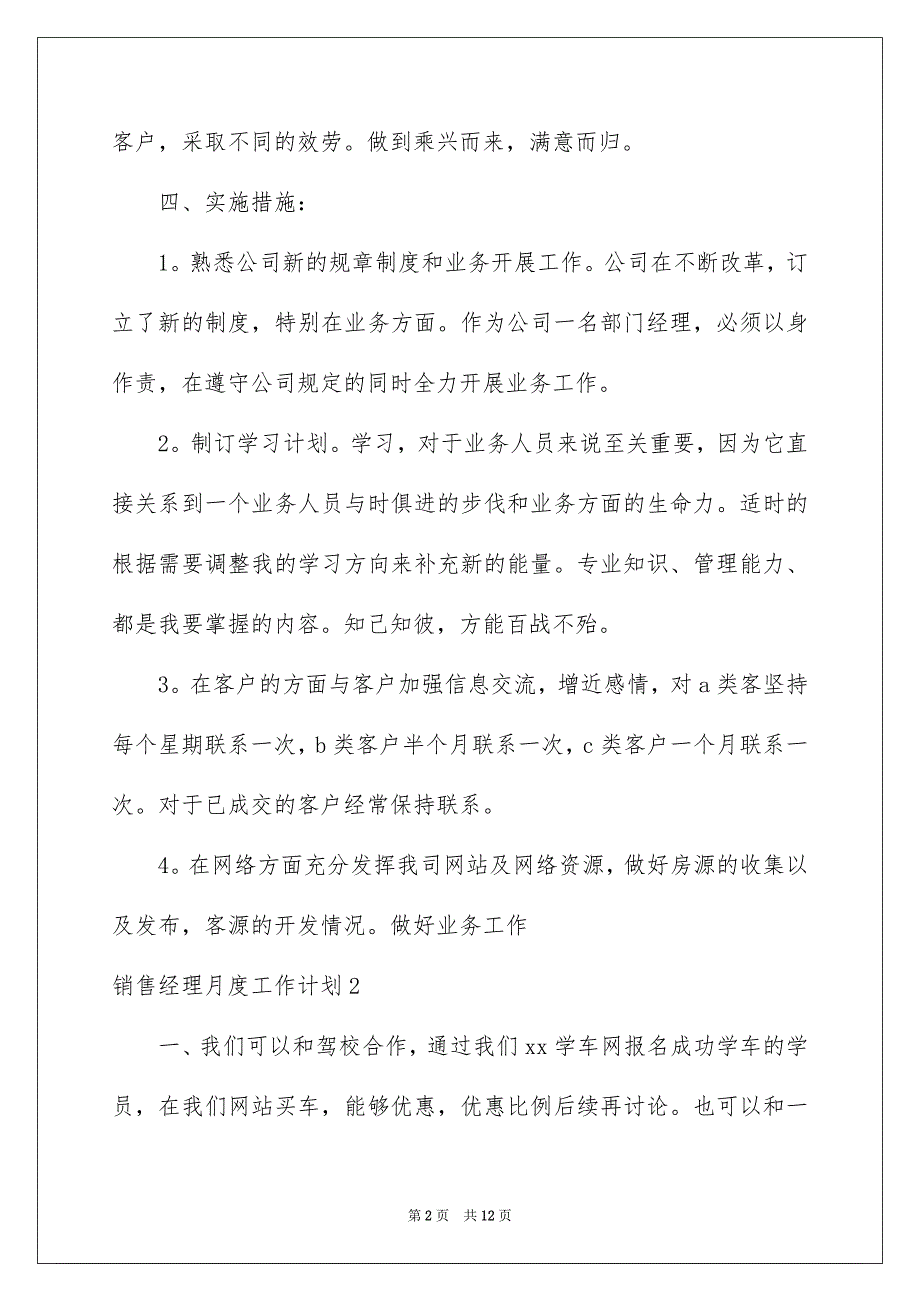 客户，采取不同的效劳。做到乘兴而来，满意而归。
四、实施措施：
1。熟悉公司新的规章制度和业务开展工作。公司在不断改革，订
立了新的制度，特别在业务方面。作为公司一名部门经理，必须以身
作责，在遵守公司规定的同时全力开展业务工作。
2。制订学习计划。学习，对于业务人员来说至关重要，因为它直
接关系到一个业务人员与时俱进的步伐和业务方面的生命力。适时的
根据需要调整我的学习方向来补充新的能量。专业知识、管理能力、
都是我要掌握的内容。知己知彼，方能百战不殆。
3。在客户的方面与客户加强信息交流，增近感情，对 a 类客坚持
每个星期联系一次，b 类客户半个月联系一次，c 类客户一个月联系一
次。对于已成交的客户经常保持联系。
4。在网络方面充分发挥我司网站及网络资源，做好房源的收集以
及发布，客源的开发情况。做好业务工作
销售经理月度工作计划 2
一、我们可以和驾校合作，通过我们 xx 学车网报名成功学车的学
员，在我们网站买车，能够优惠，优惠比例后续再讨论。也可以和一
第 2 页 共 12 页